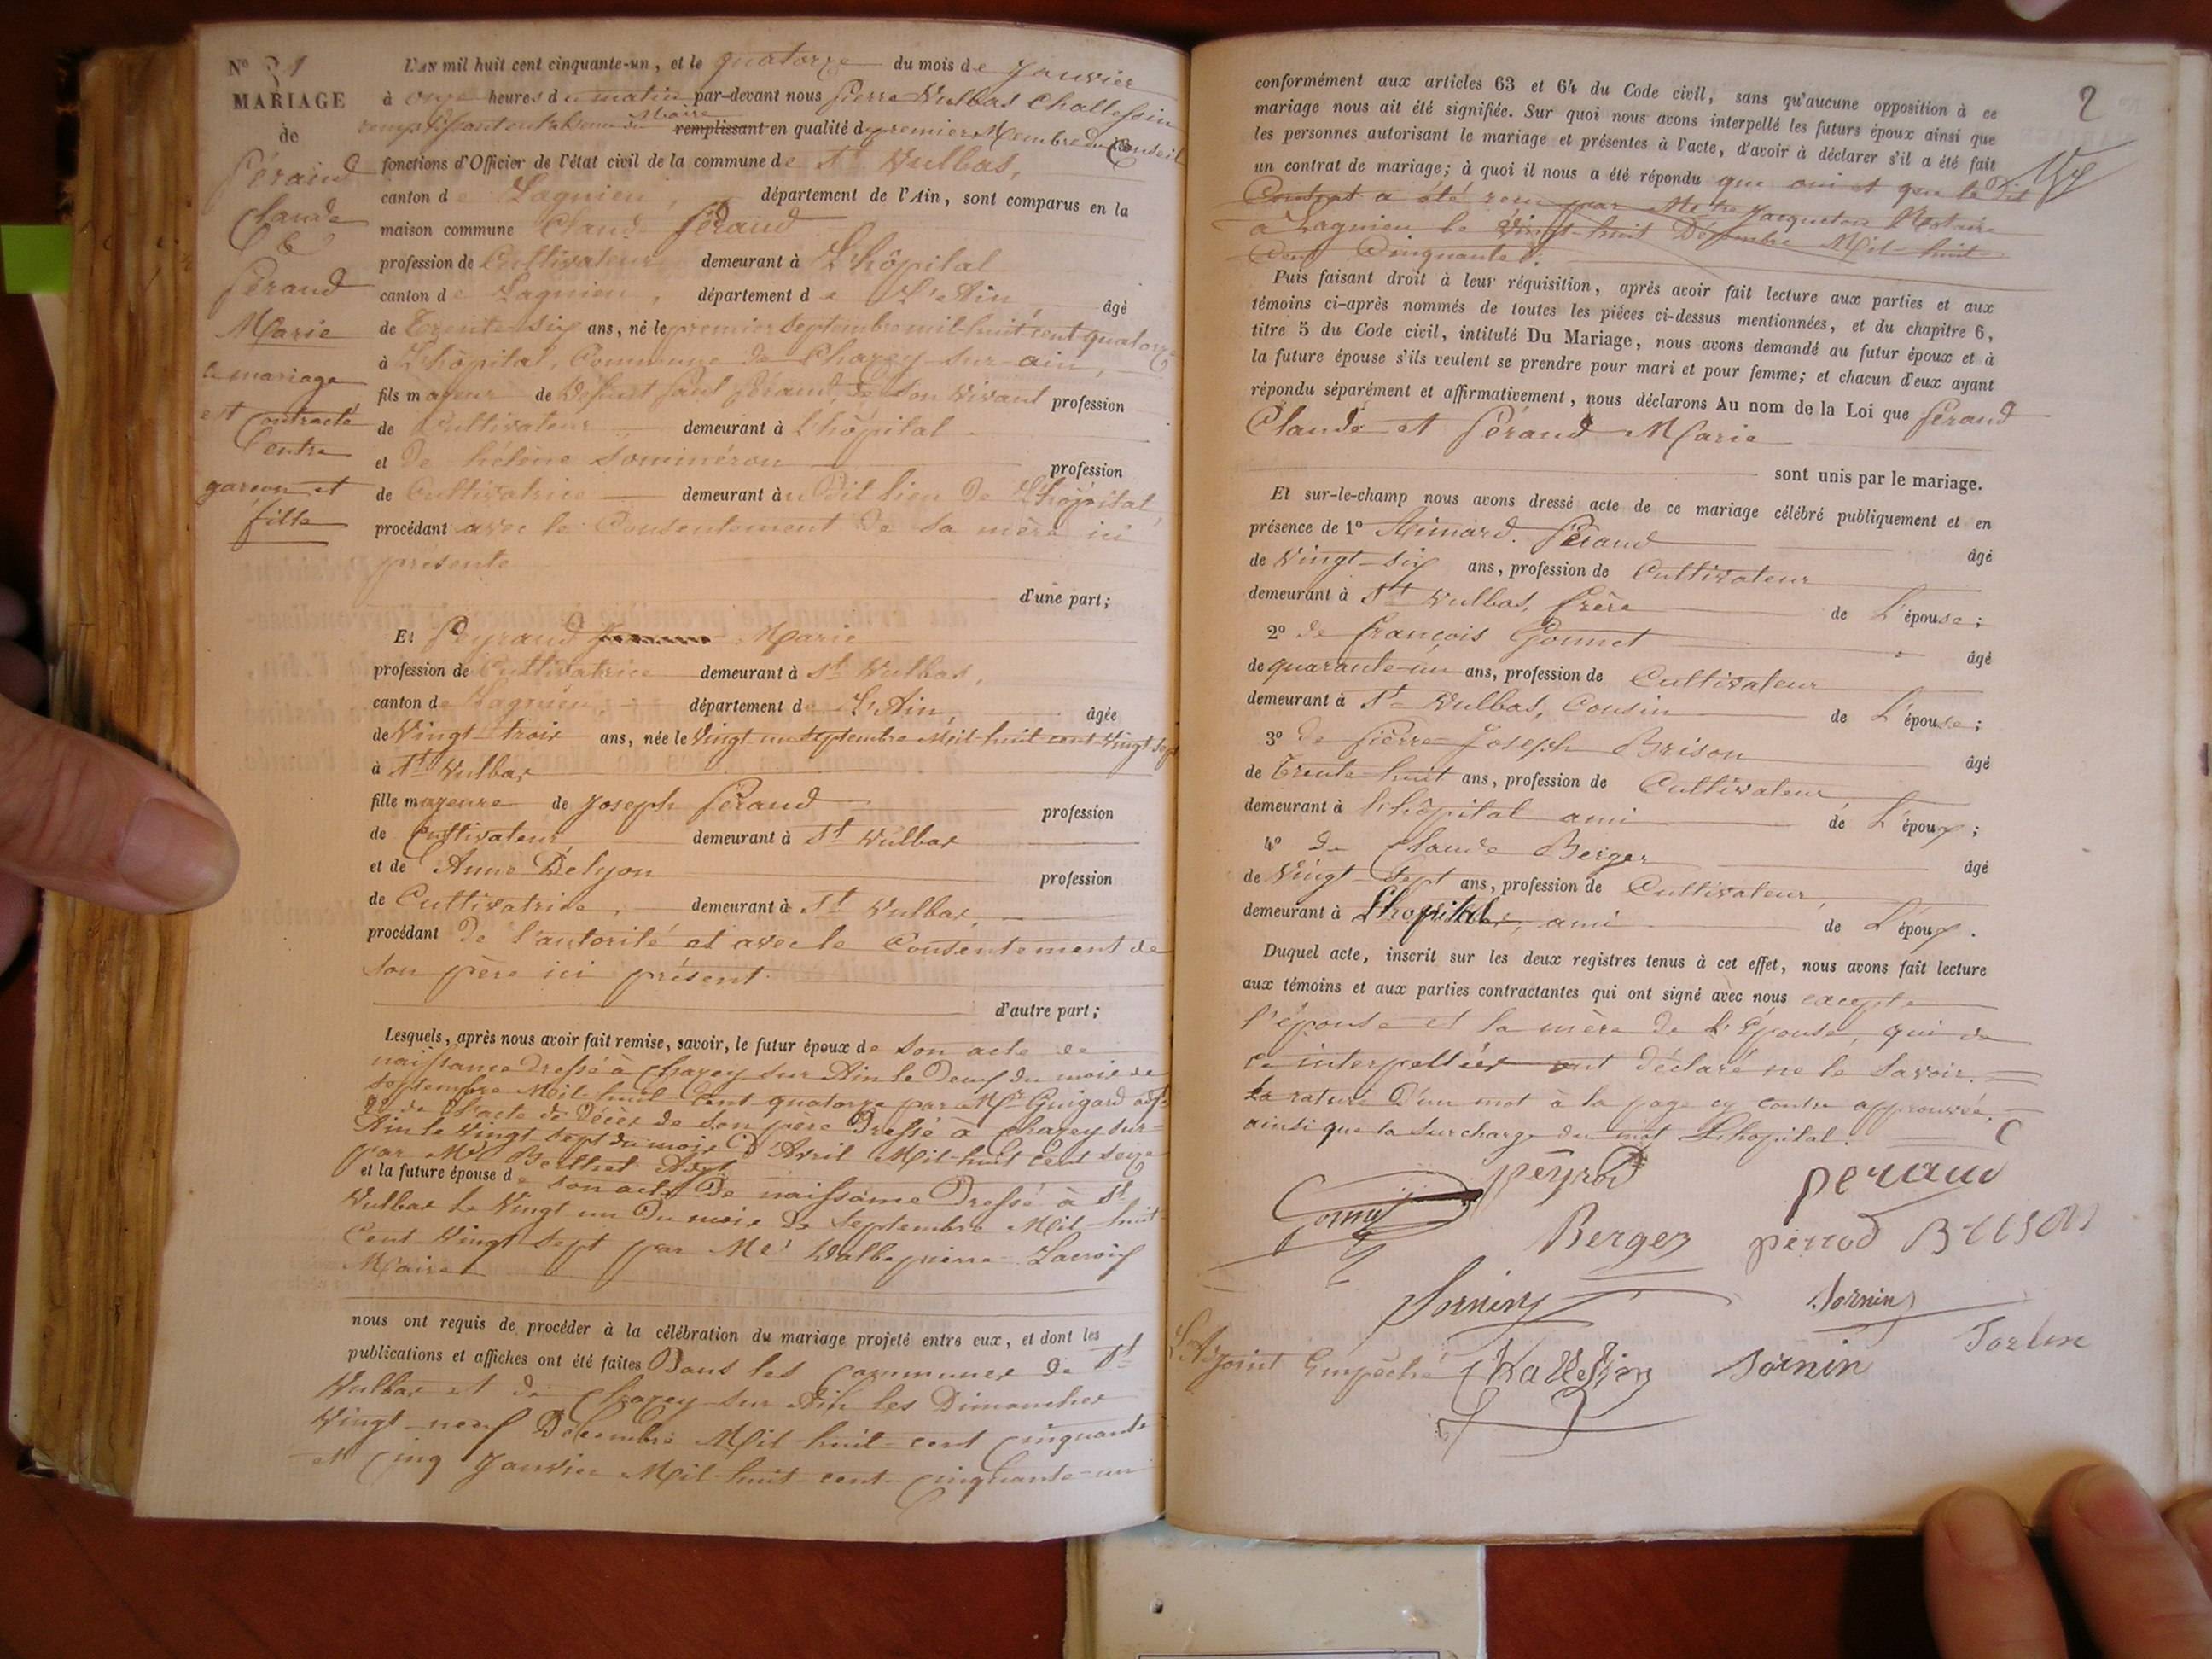 No 31
MARIAGE
de
Péraud
Claude
&
Péraud
Marie
le mariage
est contracté
entre
garçon et
fille
L'AN mil huit cent cinquante-un, et le quatorze du mois de Janvier
à onze heures du matin par-devant nous Pierre Vulbas Challessin
remplissant en l'absence du Maire remplissant en qualité de premier Membre du Conseil
fonctions d'Officier de l'état civil de la commune de St Vulbas,
canton de Lagnieu, département de l'Ain, sont comparus en la
maison commune Claude Péraud
profession de Cultivateur demeurant à L'hôpital
canton de Lagnieu, département de L'Ain, âgé
de Trente six ans, né le premier Septembre mil-huit-cent-quatorze
à L'hôpital, Commune de Chazey-sur-ain,
fils majeur de Défunt Paul Péraud, de son Vivant profession
de Cultivateur demeurant à L'hôpital
et de hélène Sominéron profession
de Cultivatrice demeurant au dit lieu de L'hôpital,
procédant avec le Consentement de sa mère ici
présente
d'une part;
Et Peyraud Marie
profession de Cultivatrice demeurant à St Vulbas,
canton de Lagnieu, département de L'Ain, âgée
de Vingt trois ans, née le Vingt un Septembre Mil huit cent Vingt sept
à St Vulbas
fille majeure de Joseph Péraud profession
de Cultivateur demeurant à St Vulbas
et de Anne Délyon profession
de Cultivatrice, demeurant à St Vulbas,
procédant De l'autorité et avec le Consentement de
son père ici présent.
d'autre part;
Lesquels, après nous avoir fait remise, savoir, le futur époux de son acte de
naissance Dressé à Chazey sur Ain le Deux du mois de
Septembre Mil huit Cent quatorze par Mr Guigard adjt
de l'acte de Décès de son père Dressé à Chazey sur-
Ain le Vingt sept du mois D'Avril Mil-huit Cent seize
par Mr Berthet Adjt
et la future épouse de son acte De naissance Dressé à St
Vulbas le Vingt un Du mois de Septembre Mil-huit
Cent Vingt sept par Mr Walbepierre Lacroix
Maire
nous ont requis de procéder à la célébration du mariage projeté entre eux, et dont les
publications et affiches ont été faites Dans les communes de St
Vulbas et de Chazey sur Ain les Dimanches
Vingt-neuf Décembre Mil-huit-cent Cinquante
et Cinq Janvier Mil-huit-cent-Cinquante-un
2
conformément aux articles 63 et 64 du Code civil, sans qu'aucune opposition à ce
mariage nous ait été signifiée. Sur quoi nous avons interpellé les futurs époux ainsi que
les personnes autorisant le mariage et présentes à l'acte, d'avoir à déclarer s'il a été fait
un contrat de mariage; à quoi il nous a été répondu que oui et que le dit
Contrat a été reçu par Me Jacqueton Notaire
à Lagnieu le Vingt-huit Décembre Mil-huit
Cent Cinquante.
Puis faisant droit à leur réquisition, après avoir fait lecture aux parties et aux
témoins ci-après nommés de toutes les pièces ci-dessus mentionnées, et du chapitre 6,
titre 5 du Code civil, intitulé Du Mariage, nous avons demandé au futur époux et à
la future épouse s'ils veulent se prendre pour mari et pour femme; et chacun d'eux ayant
répondu séparément et affirmativement, nous déclarons Au nom de la Loi que Péraud
Claude et Péraud Marie
sont unis par le mariage.
Et sur-le-champ nous avons dressé acte de ce mariage célébré publiquement et en
présence de 1o Aimard Péraud âgé
de Vingt-six ans, profession de Cultivateur
demeurant à St Vulbas, frère de L'épouse;
2o de François Gonnet âgé
de quarante-un ans, profession de Cultivateur
demeurant à St Vulbas, Cousin de L'épouse;
3o de Pierre-Joseph Brison âgé
de Trente-huit ans, profession de Cultivateur
demeurant à L'hôpital ami de L'époux;
4o de Claude Berger âgé
de Vingt-Sept ans, profession de Cultivateur,
demeurant à Lhopital, ami de L'époux.
Duquel acte, inscrit sur les deux registres tenus à cet effet, nous avons fait lecture
aux témoins et aux parties contractantes qui ont signé avec nous excepté
l'épouse et la mère de L'Épouse, qui de
ce interpellées ont déclaré ne le Savoir.
La rature d'un mot à la page cy contre approuvée,
ainsi que la surcharge du mot Lhopital.
peyrod péraud
Gonnet
Berger perrod Brison
Sornin Sornin
L'Adjoint Empêché Challessin Sornin